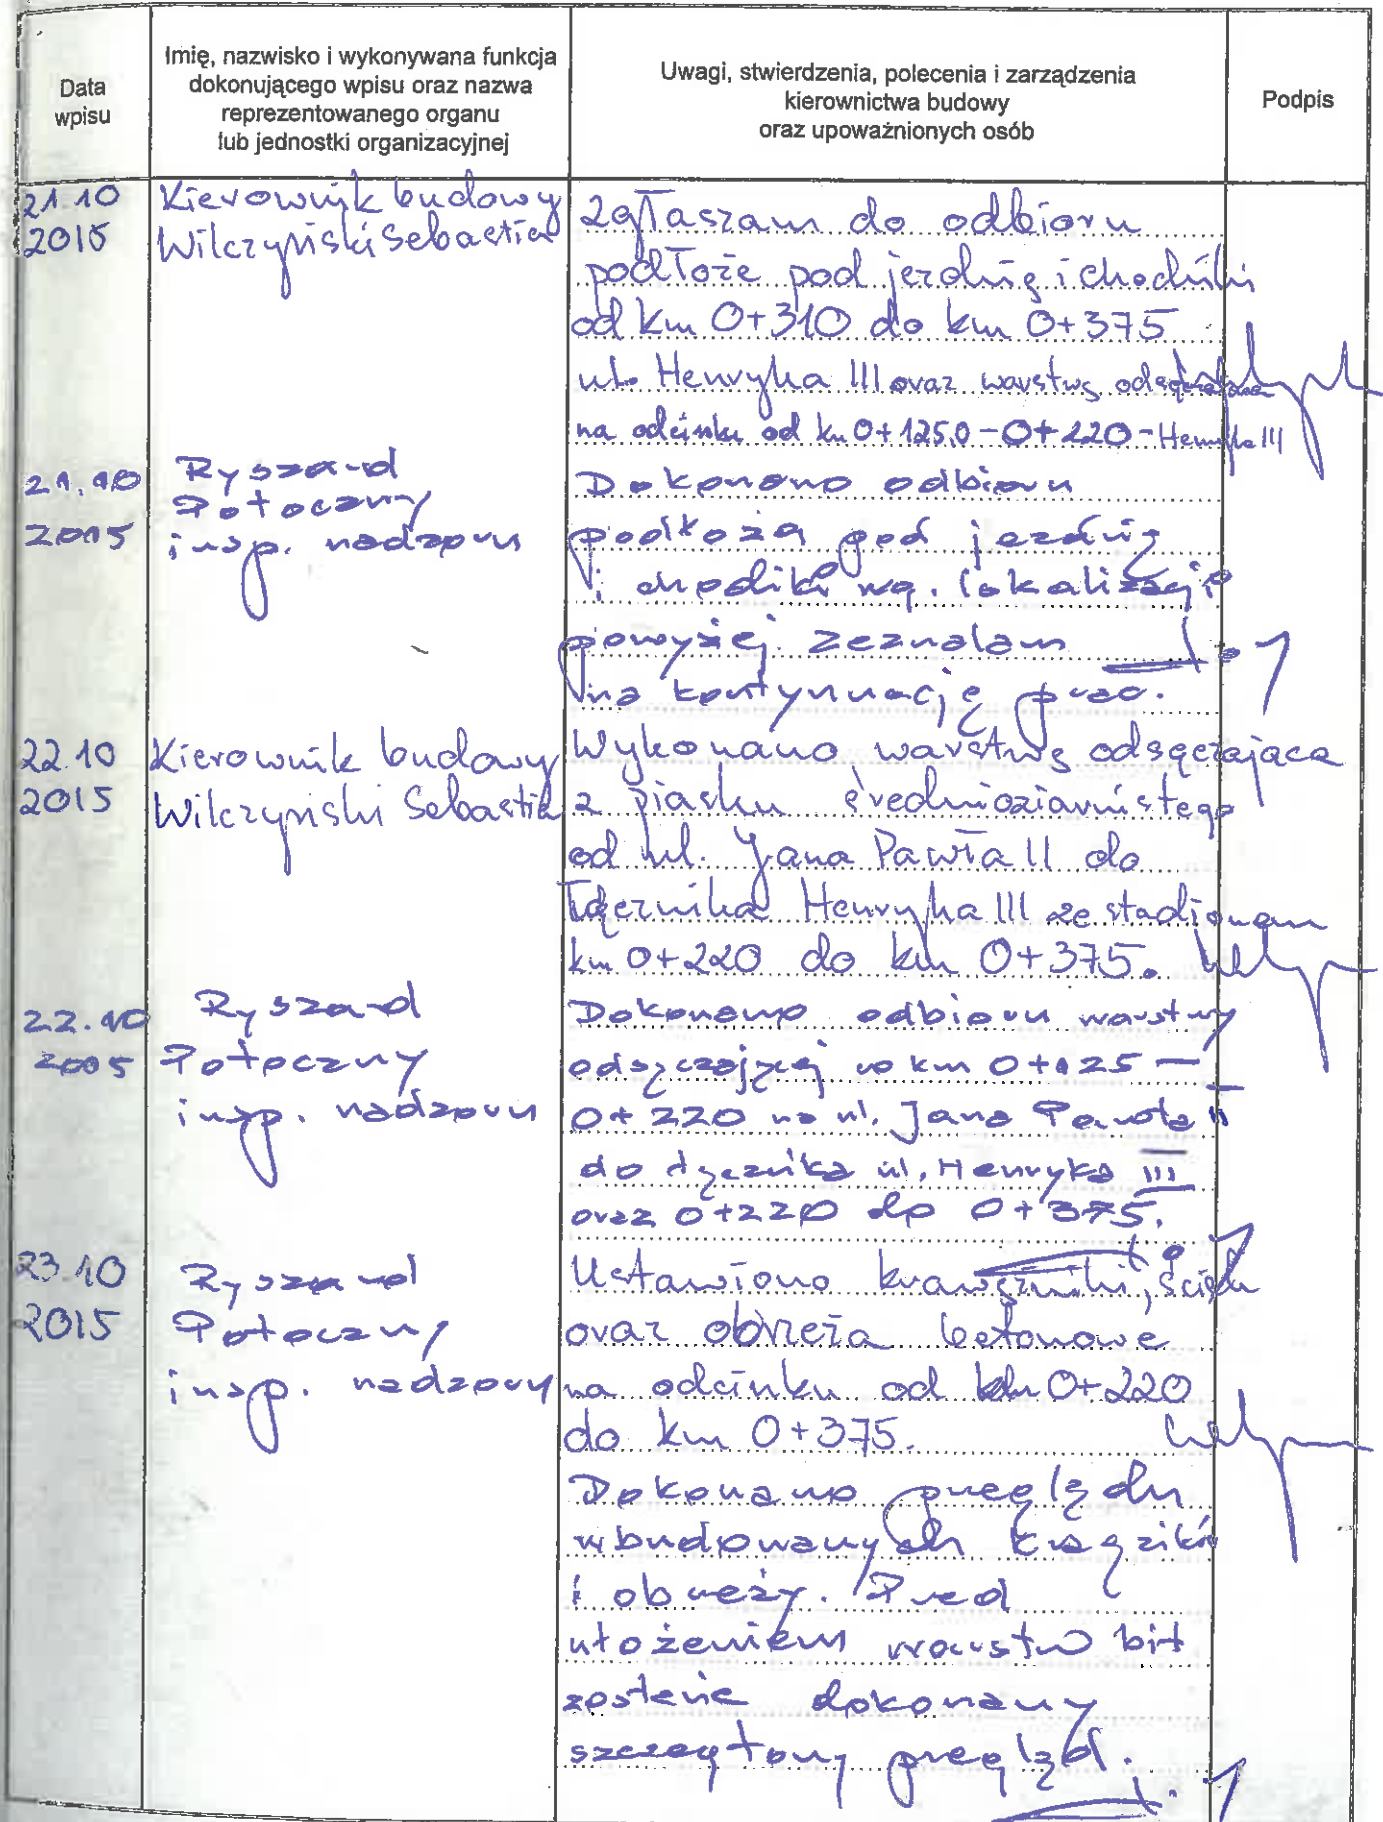 Data
wpisu
Imię, nazwisko i wykonywana funkcja
dokonującego wpisu oraz nazwa
reprezentowanego organu
lub jednostki organizacyjnej
Uwagi, stwierdzenia, polecenia i zarządzenia
kierownictwa budowy
oraz upoważnionych osób
Podpis
21.10
2015
Kierownik budowy
Wilczyński Sebastia
Zgłaszam do odbioru
podłoże pod jezdnię i chodniki
od km 0+310 do km 0+375
ul. Henryka III oraz warstwę odsączającą
na odcinku od km 0+125,0 - 0+220 - Henryka III
21.10
2015
Ryszard
Potoczny
insp. nadzoru
Dokonano odbioru
podłoża pod jezdnię
i chodniki wg. lokalizacji
powyżej. Zezwalam
na kontynuację prac.
22.10
2015
Kierownik budowy
Wilczyński Sebastia
Wykonano warstwę odsączająca
z piasku średnioziarnistego
od ul. Jana Pawła II do
łącznika Henryka III ze stadionem
km 0+220 do km 0+375.
22.10
2015
Ryszard
Potoczny
insp. nadzoru
Dokonano odbioru warstwy
odsączającej w km 0+125 -
0+220 na ul. Jana Pawła II
do łącznika ul. Henryka III
oraz 0+220 do 0+375.
23.10
2015
Ryszard
Potoczny
insp. nadzoru
Ustawiono krawężniki, ścieku
oraz obrzeża betonowe
na odcinku od km 0+220
do km 0+375.
Dokonano przeglądu
wbudowanych
i obrzeży. Przed
ułożeniem warstw bit
zostanie dokonany
przegląd.